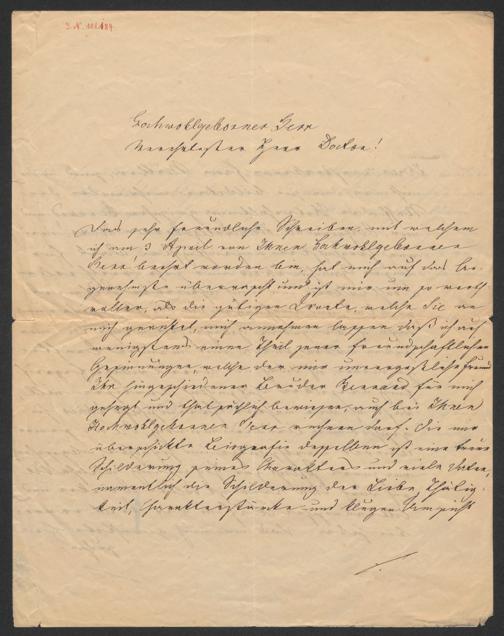 Hochwohlgeborner Herr
Verehrtester Herr Doctor!
Das sehr freundliche Schreiben, mit welchem
ich am 3 April von Ihnen Hochwohlgeborener
Herr beehrt worden bin, hat mich auf das
überrascht und ist mir um so werth
voller, als die gütigen Worte, welche Sie an
mich gerichtet, mich annehmen lassen daß ich auf
wenigstens einen Theil jener freundschaftlichen
Gesinnungen welche der mir unvergeßliche
hingeschiedene Bruder für mich
gehegt und thatsächlich bewiesen, auch bei Ihnen
Hochwohlgeborener Herr rechnen darf. Die mir
überschickte Biografie desselben ist eine treue
Schilderung seines Charakters und vieler
namentlich die Schilderung der Liebe, Thätig-
keit, Charakterstärke und klugen Umsicht